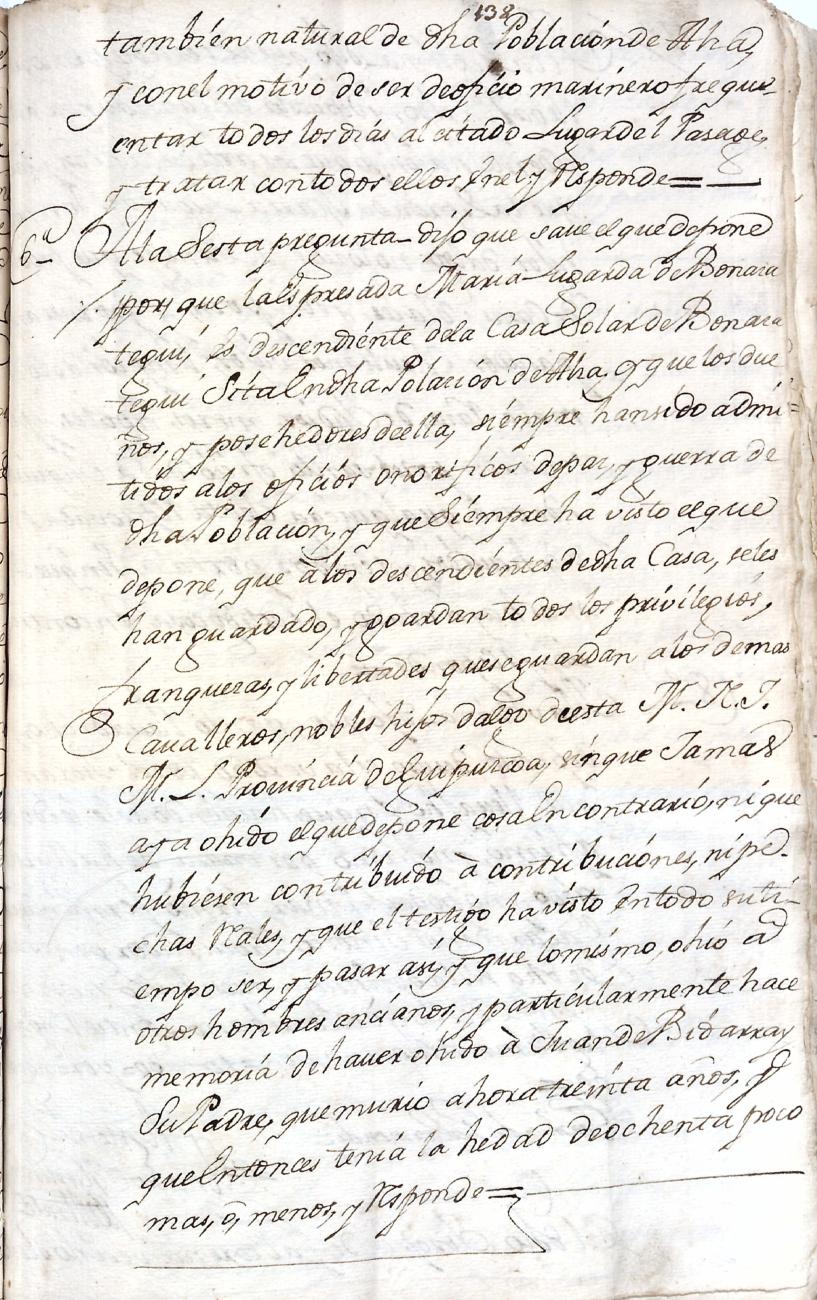 138
también natural de dha Poblaciónde Alza,
y conel motivo de ser deoficio marinero frequ-
entar todos los dias alcitado Lugardel Pasage,
y tratar contodos ellos Enel, y Rsponde=
6ª Ala Sesta pregunta dijo que save elquedepone
porque laespresada María Lugarda de Bonaza
tegui, és descendiénte dela Casa Solar de Bonaza
tegui Sita Endha Polación de Alza, y que los due
ños, y posehedores deella, siémpre hansido admi=
tidos alos ofíciós onoríficos depaz, y guerra de
dha Población, y que Siémpre ha visto elque
depone, que à los descendiéntes dedha Casa, seles
han guardado, y goardan todos los privilegiós,
franquezas, y libertades queseguardan alos demas
Cavalleros, nobles hijos dalgo deesta M. N. I.
M. L. Províncía de Guipuzcoa, sínque Jamas
aya ohído elquedepone cosa En contrarió, ni que
hubiésen contribuído à contribuciónes, ni pe-
chas Rales, y que el testigo ha vísto Entodo suti-
empo ser, y pasar así, y que lomísmo, ohió a
otros hombres anciános, y partícularmente hace
memoriá dehaver ohido à Juan de Bidarray
Su Padre, quemurió ahora treínta años, y
que Entonces tenía la hedad deochenta poco
mas, ó, menos, y Rsponde=